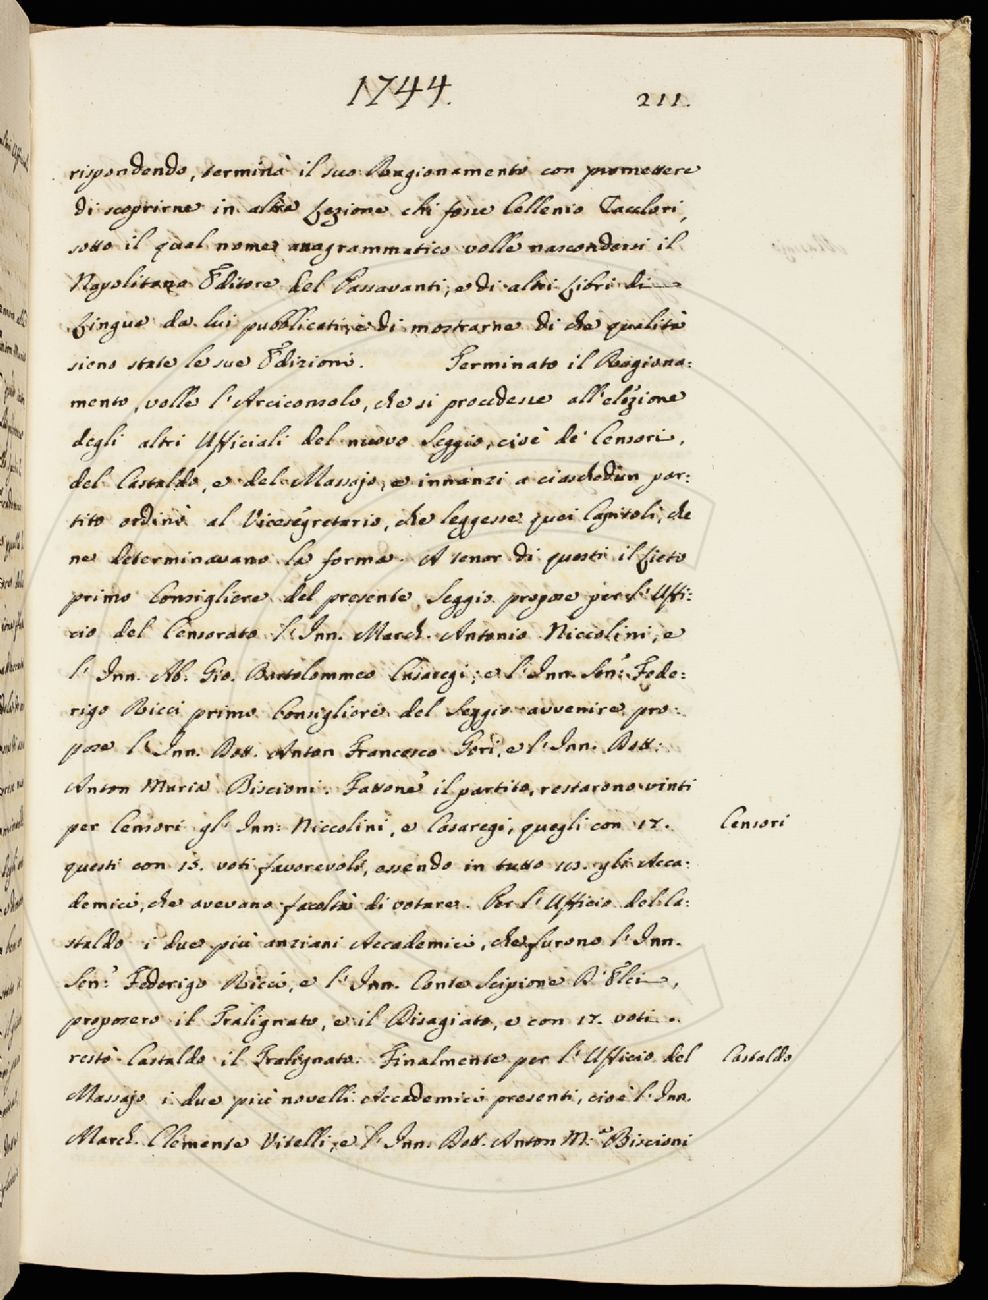 1744.
211.
rispondendo, terminò il suo Ragionamento con promettere
di scoprirne in altra Lezione chi fosse Cellenio Zacclori,
sotto il qual nome anagrammatico volle nascondersi il
Napolitano Editore del Passavanti, e di altri Libri di
Lingua da lui pubblicati, e di mostrarne di che qualità
sieno state le sue Edizioni. Terminato il Ragiona:
mento, volle l'Arciconsolo, che si procedesse all'elezione
degli altri Ufficiali del nuovo Seggio, cioè de' Censori,
del Castaldo, e del Massajo, e innanzi a ciaschedun par:
tito ordinò al Vicesegretario, che leggesse quei Capitoli, che
ne determinavano la forma. A tenor di questi il lieto
primo Consigliere del presente Seggio propose per l'Uffi:
cio del Censorato l'Inn. March. Antonio Niccolini, e
l'Inn. Ab. Gio. Bartolommeo Casaregi; e l'Inn. Sen.r Fede:
rigo Ricci primo Consigliere del Seggio avvenire pro:
pose l'Inn. Dott. Anton Francesco Gori, e l'Inn. Dott:
Anton Maria Biscioni. Fattone il partito, restarono vinti
per Censori gl'Inn: Niccolini, e Casaregi, quegli con 17.
questi con 15. voti favorevoli, essendo in tutto gli Acca:
demici, che avevano facoltà di votare. Per l'Ufficio del Ca:
staldo i due più anziani Accademici, che furono l'Inn.
Sen.r Federigo Ricci, e l'Inn. Conte Scipione D'Elci,
proposero il Tralignato, e il Disagiato, e con 17. voti
restò Castaldo il Tralignato. Finalmente per l'Ufficio del
Massajo i due più novelli Accademici presenti, cioè l'Inn.
March. Clemente Vitelli, e l'Inn. Dott. Anton M.a Biscioni
Censori
Castaldo